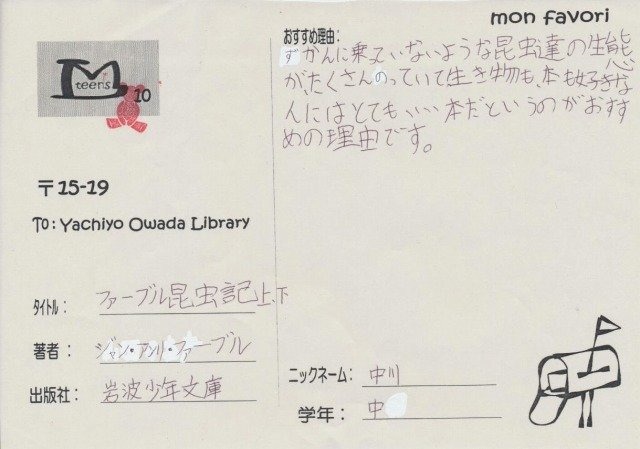 mon favori
M
teens
10
〒15-19
To: Yachiyo Owada Library
タイトル: ファーブル昆虫記上、下
著者: ジャン・アンリ・ファーブル
出版社: 岩波少年文庫
おすすめ理由:
ずかんに乗っていないような昆虫達の生態
が、たくさんのっていて生き物も、本も好きな
人にはとても、いい本だというのがおすす
めの理由です。
ニックネーム: 中川
学年: 中